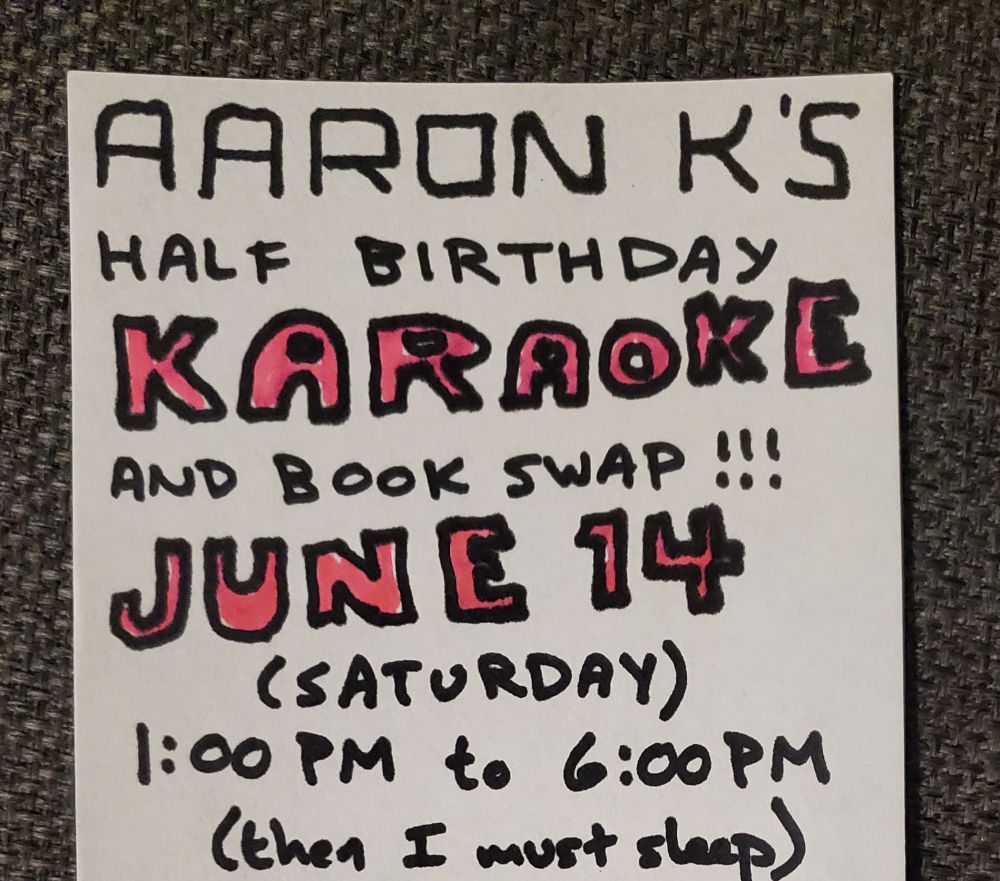 AARON K'S
HALF BIRTHDAY
KARAOKE
AND BOOK SWAP !!!
JUNE 14
(SATURDAY)
1:00 PM to 6:00 PM
(then I must sleep)